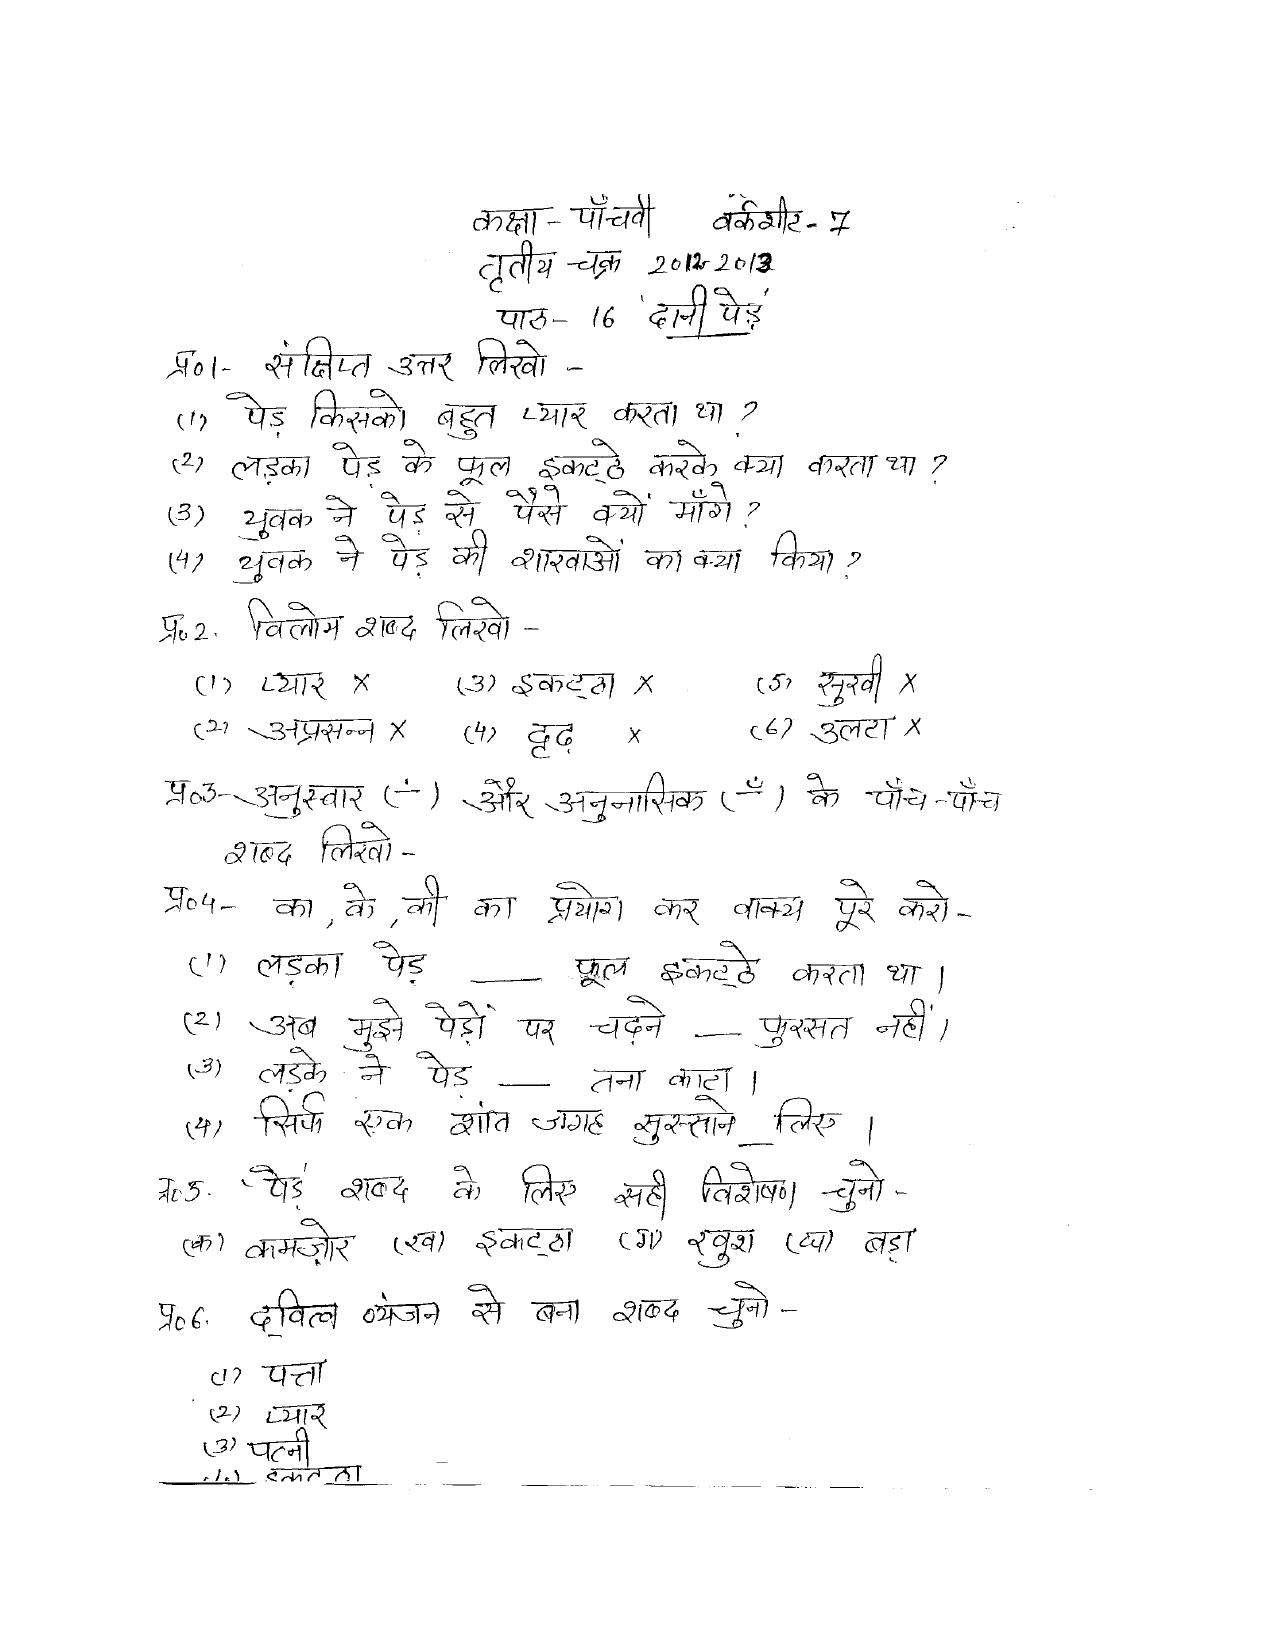 कक्षा - पाँचवीं वर्कशीट - 7
तृतीय चक्र 2012-2013
पाठ - 16 'दानी पेड़'
प्र०1- संक्षिप्त उत्तर लिखो -
(1) पेड़ किसको बहुत प्यार करता था ?
(2) लड़का पेड़ के फूल इकट्ठे करके क्या करता था ?
(3) युवक ने पेड़ से पैसे क्यों माँगे ?
(4) युवक ने पेड़ की शाखाओं का क्या किया ?
प्र०2. विलोम शब्द लिखो -
(1) प्यार X (3) इकट्ठा X (5) सुखी X
(2) अप्रसन्न X (4) दृढ़ X (6) उलटा X
प्र०3- अनुस्वार (-ं) और अनुनासिक (-ँ) के पाँच-पाँच
शब्द लिखो -
प्र०4- का, के, की का प्रयोग कर वाक्य पूरे करो -
(1) लड़का पेड़ ___ फूल इकट्ठे करता था |
(2) अब मुझे पेड़ों पर चढ़ने __ फुरसत नहीं |
(3) लड़के ने पेड़ __ तना काटा |
(4) सिर्फ एक शांत जगह सुस्ताने _ लिए |
प्र०5. 'पेड़' शब्द के लिए सही विशेषण चुनो -
(क) कमज़ोर (ख) इकट्ठा (ग) खुश (घ) बड़ा
प्र०6. द्वित्व व्यंजन से बना शब्द चुनो -
(1) पत्ता
(2) प्यार
(3) पत्नी